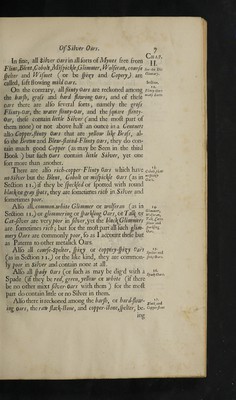 Of Silver Oars.
7
CHAP.
II.
In fine, all Silver oars in all sorts of Mynes free from
Flint, Blent, Cobolt, Mispyckle, Glimmer, Wolferan, course
spelter and Wismet (or be spizy and Copery,) are
called, soft flowing mild oars.
On the contrary, all flinty oars are reckoned among
the harsh, gross and hard flowing oars, and of these
oars there are also several sorts, namely the gross
Flinty-Oar, the water flinty-Oar, and the square flinty-
Oar, these contain little Silver (and the most part of
them none) or not above half an ounce in a Centner
also Copper-flinty Oars that are yellow like Brass, al-
so the Brown and Blew-stained Flinty oars, they do con-
tain much good Copper (as may be seen in the third
Book) but such Oars contain little Silver, yet one
sort more than another.
There are also rich-copper Flinty Oars which have
no Silver but the Blent, Cobolt or mispyckle Oars (as in
Section 11.) if they be sparkled or spotted with round
black or gray spots, they are sometimes rich in Silver and
sometimes poor.
Also all common white Glimmer or wolferan (as in
Section 11.) or glimmering or sparkling Oars, or Talk or
Cat-silver are very poor in silver, yet the black Glimmers
are sometimes rich; but for the most part all such glim-
mery Oars are commonly poor, so as I account these but
as Patterns to other metalick Oars.
Also all course-Spelter, spizy or coppery-spizy Oars
(as in Section 11.) or the like kind, they are common-
ly poor in silver and contain none at all.
Also all spady Oars (or such as may be dig'd with a
Spade (if they be red, green, yellow or white (if there
be no other meal silver Oars with them) for the most
part do contain little or no Silver in them.
Also there is reckoned among the harsh, or hard-flow-
ing oars, the raw slatk-stone, and copper-stone, spelter, be-
ing